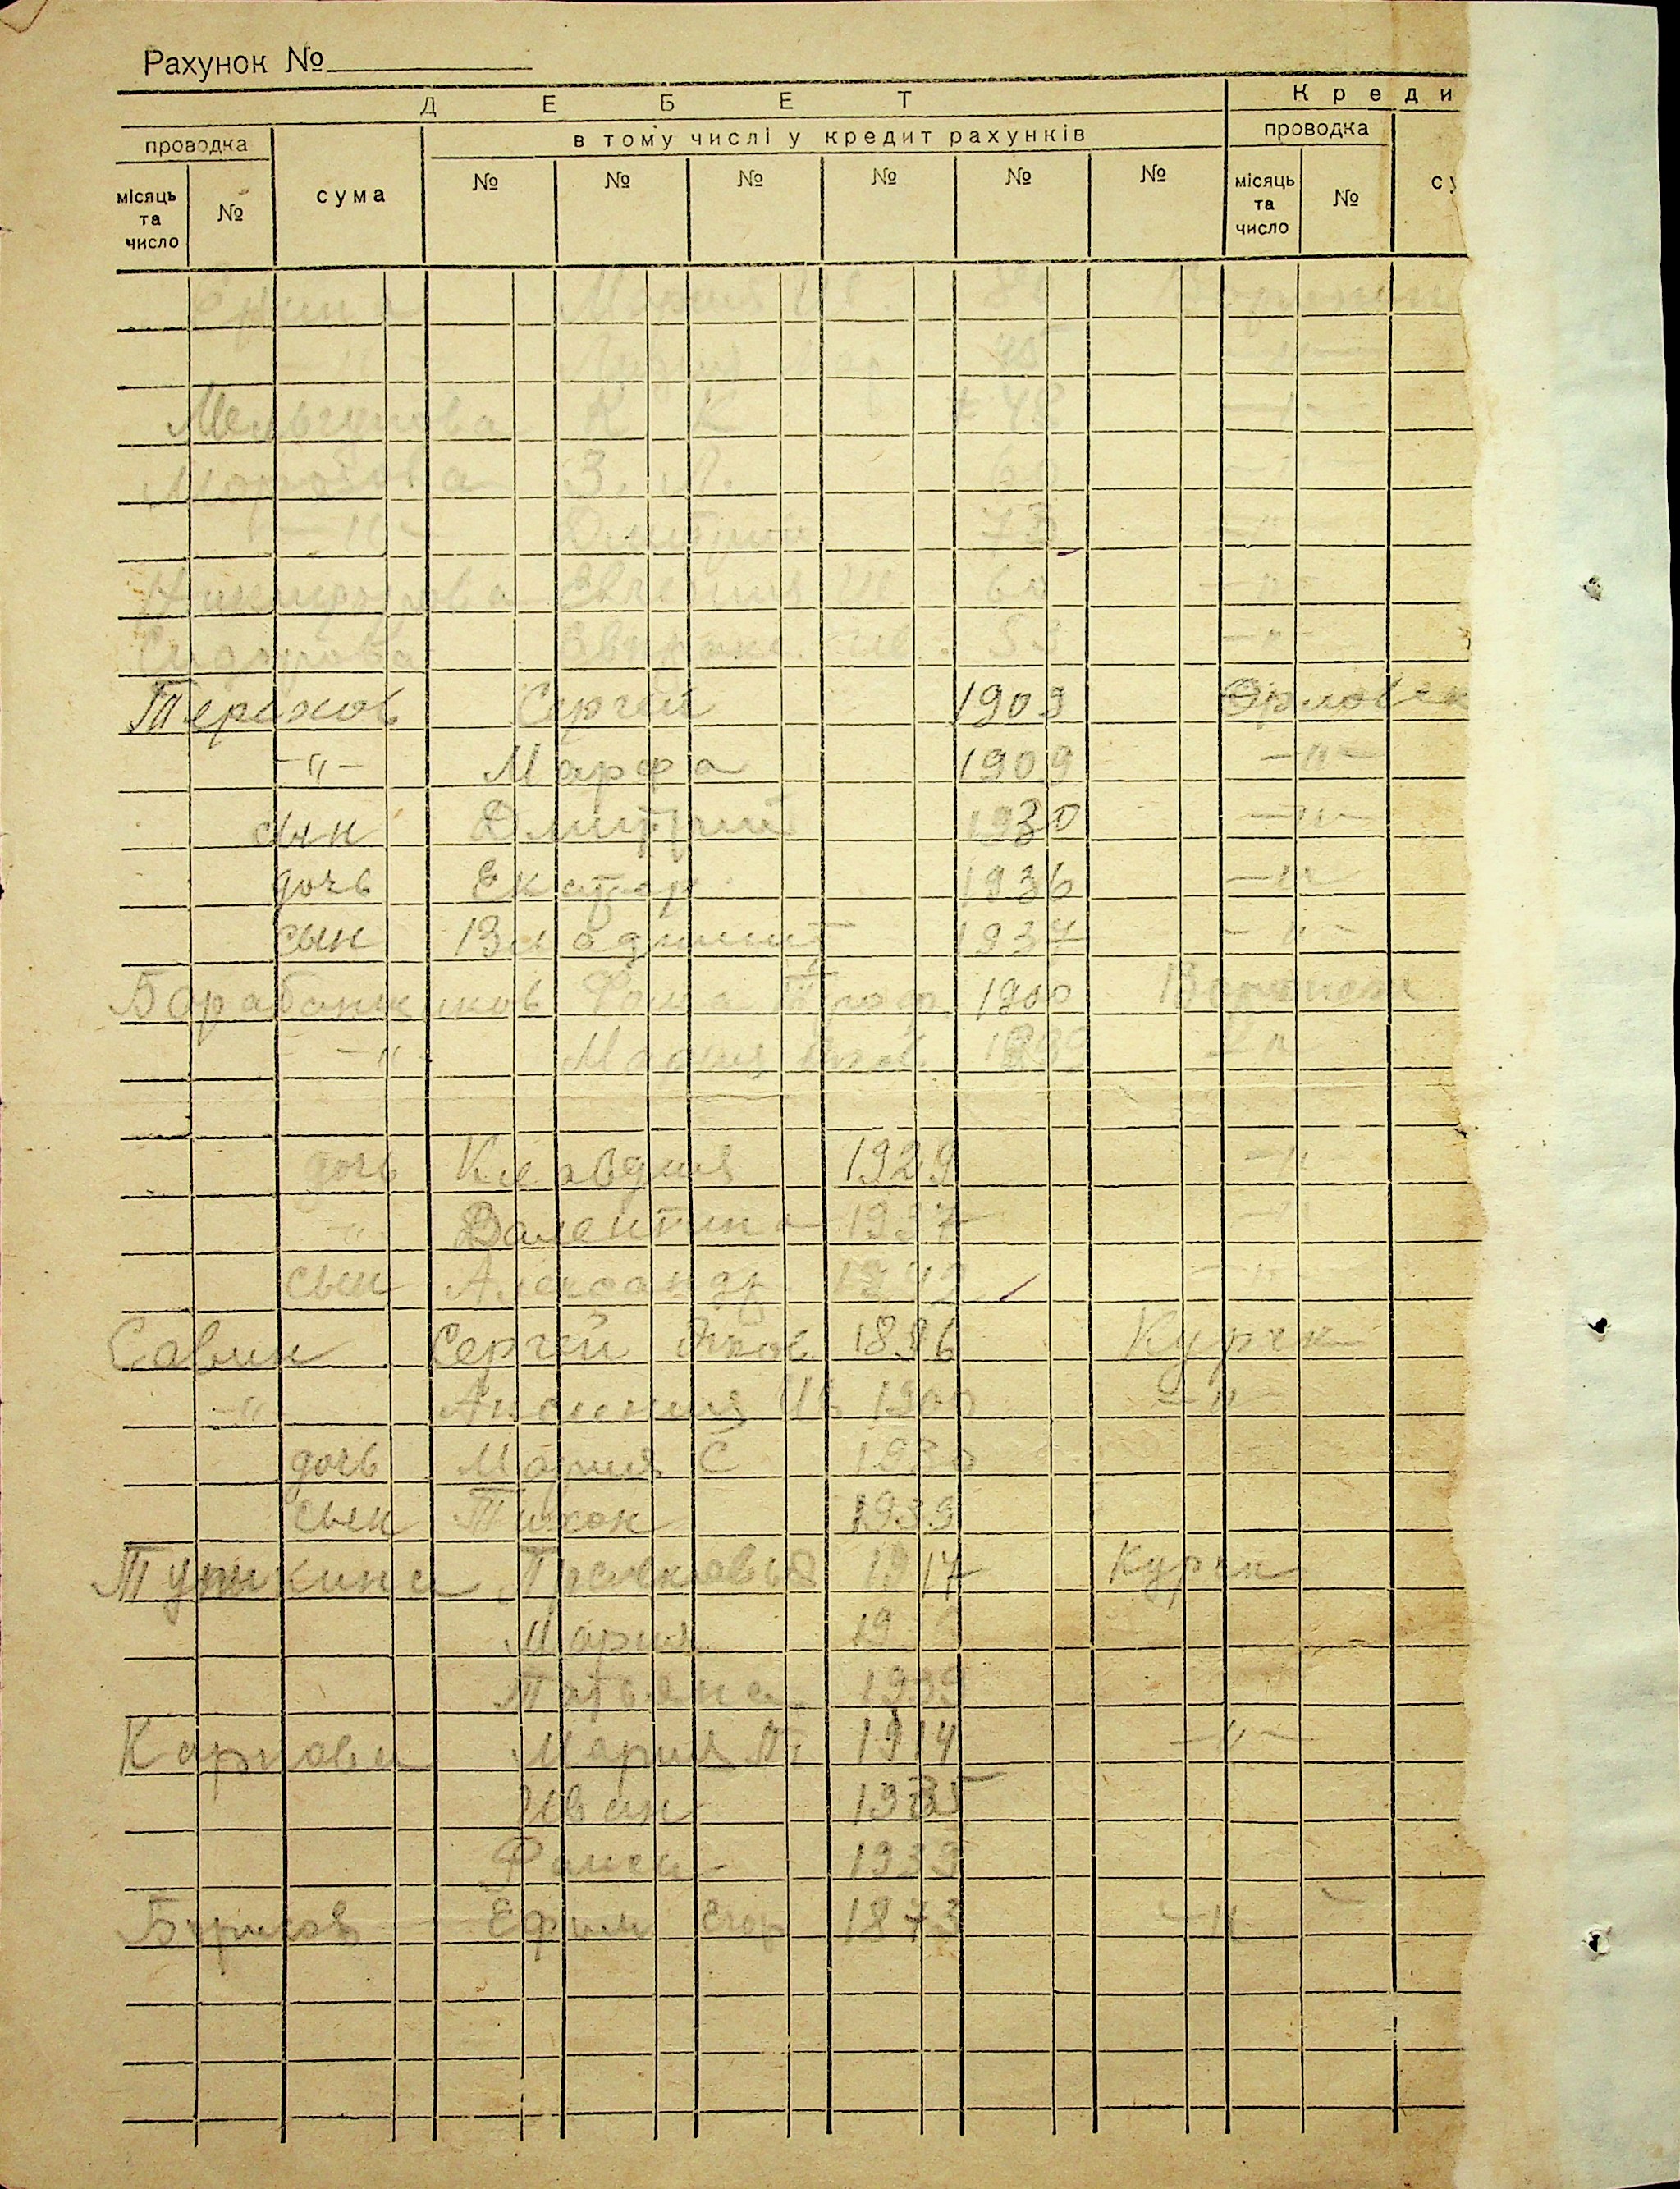 Рахунок №
ДЕБЕТ Креди
проводка в тому числі у кредит рахунків проводка
місяць та число № сума № № № № № № місяць та число № су
Мария Ив.
-"- Лидия 45 -"-
К К 48 -"-
Морозова З. Л. 60 -"-
-"- Дмитрий 73 -"-
Никифорова Евгения Ив 60 -"-
Сидорова Ив. 53 -"-
Терехов Сергей 1909 Орловск
-"- Марфа 1909 -"-
сын Дмитрий 1930 -"-
дочь Екатер. 1936 -"-
сын Владимир 1937 -"-
Барабанщиков Фома Троф. 1900 Воронеж
-"- Мария Яков. -"-
дочь Клавдия 1929 -"-
-"- Валентина 1937 -"-
сын Александр 1942 -"-
Савин Сергей Яков. 1896 Курск
-"- Аксиния Ив 1900 -"-
дочь Мария С 1930
сын Тихон 1939
Прасковья 1917 Курск
Мария
Татьяна 1939
Карпова Мария П. 1914 -"-
Иван 1935
1939
Борисов Ефим Егор 1873 -"-